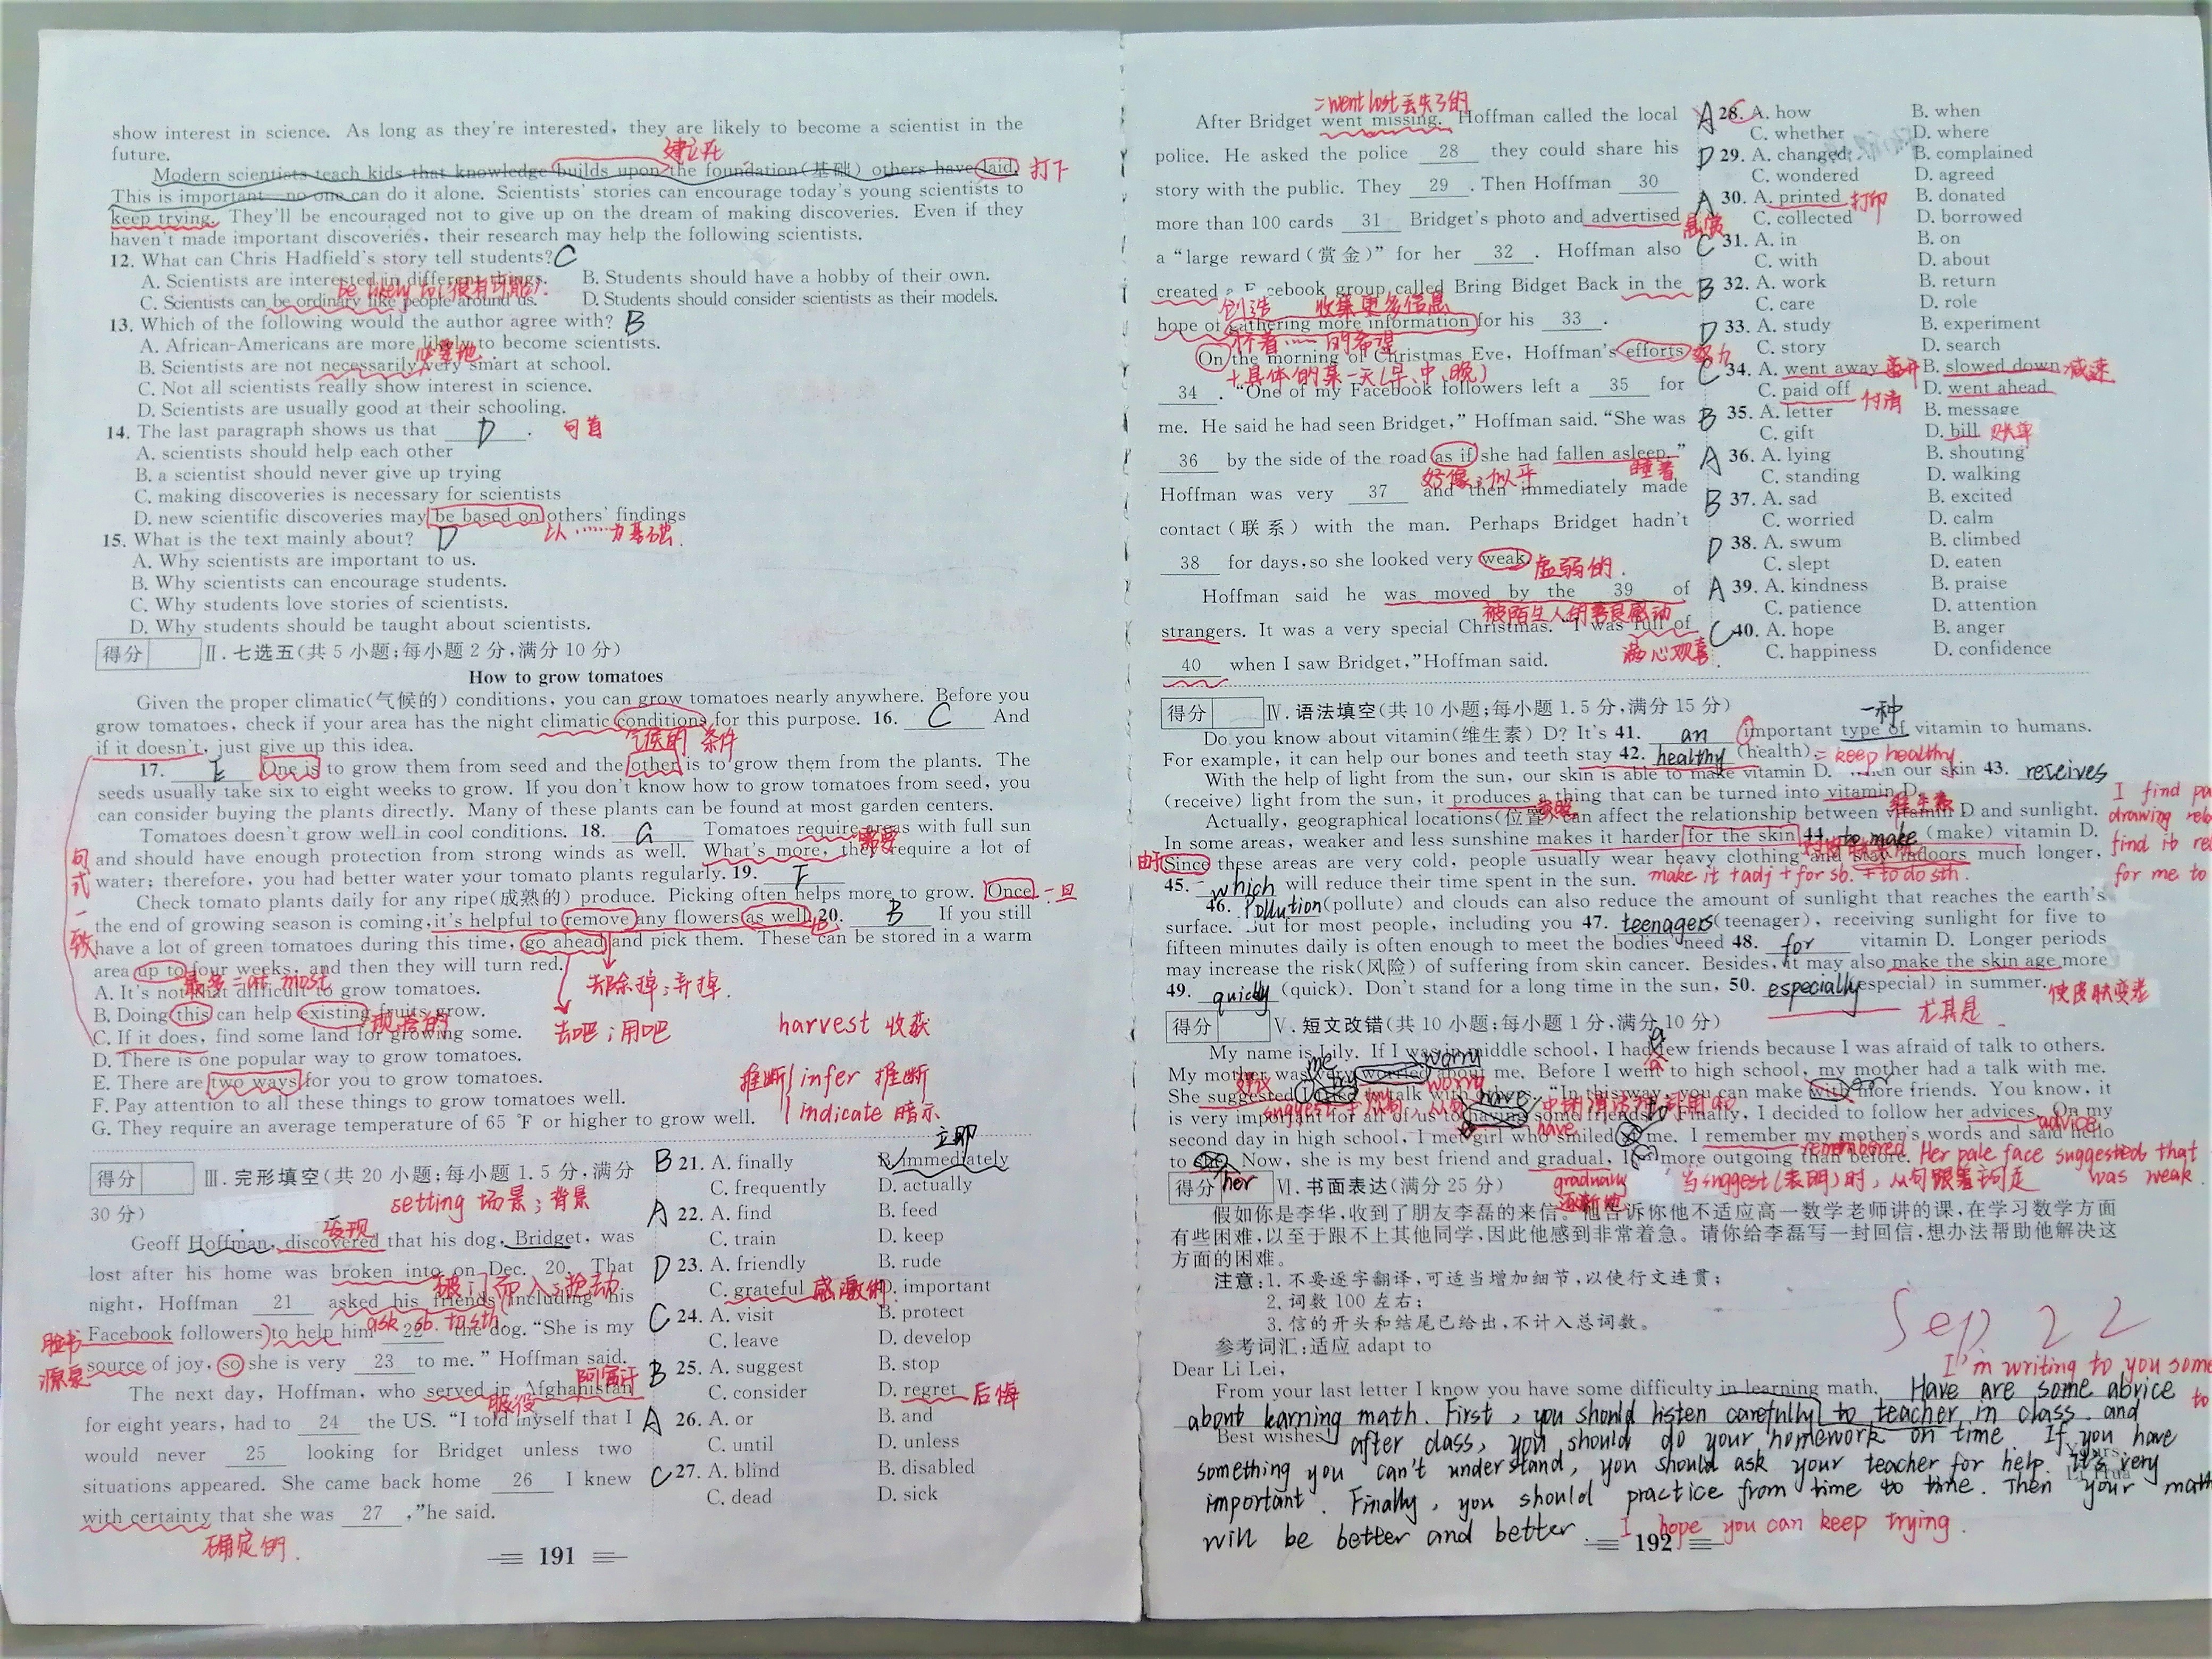 show interest in science. As long as they're interested, they are likely to become a scientist in the
future.
建立在
Modern scientists teach kids that knowledge builds upon the foundation(基础) others have laid. 打下
This is important no one can do it alone. Scientists' stories can encourage today's young scientists to
keep trying. They'll be encouraged not to give up on the dream of making discoveries. Even if they
haven't made important discoveries, their research may help the following scientists.
12. What can Chris Hadfield's story tell students? C
A. Scientists are interested in different things. B. Students should have a hobby of their own.
C. Scientists can be ordinary like people around us. D. Students should consider scientists as their models.
13. Which of the following would the author agree with? B
A. African-Americans are more likely to become scientists.
B. Scientists are not necessarily very smart at school.
C. Not all scientists really show interest in science.
D. Scientists are usually good at their schooling.
14. The last paragraph shows us that D . 句首
A. scientists should help each other
B. a scientist should never give up trying
C. making discoveries is necessary for scientists
D. new scientific discoveries may be based on others' findings
以……为基础.
15. What is the text mainly about? D
A. Why scientists are important to us.
B. Why scientists can encourage students.
C. Why students love stories of scientists.
D. Why students should be taught about scientists.
得分 Ⅱ. 七选五(共 5 小题;每小题 2 分,满分 10 分)
How to grow tomatoes
Given the proper climatic(气候的) conditions, you can grow tomatoes nearly anywhere. Before you
grow tomatoes, check if your area has the night climatic conditions for this purpose. 16. C And
if it doesn't, just give up this idea.
气候的 条件
17. E One is to grow them from seed and the other is to grow them from the plants. The
seeds usually take six to eight weeks to grow. If you don't know how to grow tomatoes from seed, you
can consider buying the plants directly. Many of these plants can be found at most garden centers.
Tomatoes doesn't grow well in cool conditions. 18. G Tomatoes require areas with full sun
需要
and should have enough protection from strong winds as well. What's more, they require a lot of
water; therefore, you had better water your tomato plants regularly. 19. F
Check tomato plants daily for any ripe(成熟的) produce. Picking often helps more to grow. Once 一旦
the end of growing season is coming, it's helpful to remove any flowers as well. 20. B If you still
have a lot of green tomatoes during this time, go ahead and pick them. These can be stored in a warm
area up to four weeks, and then they will turn red.
句式一致
最多=at most
去除掉;弃掉.
A. It's not that difficult to grow tomatoes.
B. Doing this can help existing fruits grow.
现存的
去吧;用吧
harvest 收获
C. If it does, find some land for growing some.
D. There is one popular way to grow tomatoes.
E. There are two ways for you to grow tomatoes.
F. Pay attention to all these things to grow tomatoes well.
G. They require an average temperature of 65 ℉ or higher to grow well.
推断 infer 推断
indicate 暗示
得分 Ⅲ. 完形填空(共 20 小题;每小题 1.5 分,满分
30 分)
setting 场景;背景
发现
Geoff Hoffman, discovered that his dog, Bridget, was
lost after his home was broken into on Dec. 20. That
破门而入;抢劫
night, Hoffman 21 asked his friends (including his
ask sb. to sth.
脸书 Facebook followers) to help him 22 the dog. "She is my
源泉 source of joy, so she is very 23 to me." Hoffman said.
阿富汗
The next day, Hoffman, who served in Afghanistan
服役
for eight years, had to 24 the US. "I told myself that I
would never 25 looking for Bridget unless two
situations appeared. She came back home 26 I knew
with certainty that she was 27 ,"he said.
确定的.
立即
B 21. A. finally B. immediately
C. frequently D. actually
A 22. A. find B. feed
C. train D. keep
D 23. A. friendly B. rude
C. grateful 感激的 D. important
C 24. A. visit B. protect
C. leave D. develop
B 25. A. suggest B. stop
C. consider D. regret 后悔
A 26. A. or B. and
C. until D. unless
C 27. A. blind B. disabled
C. dead D. sick
191
=went lost 丢失了的
After Bridget went missing. Hoffman called the local
police. He asked the police 28 they could share his
story with the public. They 29 . Then Hoffman 30
more than 100 cards 31 Bridget's photo and advertised
悬赏
a "large reward(赏金)" for her 32 . Hoffman also
created a Facebook group called Bring Bidget Back in the
创造 收集更多信息
hope of gathering more information for his 33 .
怀着……的希望
On the morning of Christmas Eve, Hoffman's efforts 努力
+具体的某一天(早、中、晚)
34 . "One of my Facebook followers left a 35 for
me. He said he had seen Bridget," Hoffman said. "She was
36 by the side of the road as if she had fallen asleep."
好像;似乎 睡着
Hoffman was very 37 and then immediately made
contact(联系) with the man. Perhaps Bridget hadn't
38 for days, so she looked very weak. 虚弱的.
Hoffman said he was moved by the 39 of
被陌生人的善良感动
strangers. It was a very special Christmas. "I was full of
满心欢喜
40 when I saw Bridget,"Hoffman said.
28. A. how B. when
C. whether D. where
D 29. A. changed B. complained
C. wondered D. agreed
A 30. A. printed 打印 B. donated
C. collected D. borrowed
C 31. A. in B. on
C. with D. about
B 32. A. work B. return
C. care D. role
D 33. A. study B. experiment
C. story D. search
C 34. A. went away 离开 B. slowed down 减速
C. paid off 付清 D. went ahead
B 35. A. letter B. message
C. gift D. bill 账单
A 36. A. lying B. shouting
C. standing D. walking
B 37. A. sad B. excited
C. worried D. calm
D 38. A. swum B. climbed
C. slept D. eaten
A 39. A. kindness B. praise
C. patience D. attention
C 40. A. hope B. anger
C. happiness D. confidence
得分 Ⅳ. 语法填空(共 10 小题;每小题 1.5 分,满分 15 分)
一种
Do you know about vitamin(维生素) D? It's 41. an important type of vitamin to humans.
For example, it can help our bones and teeth stay 42. healthy (health). = keep healthy
With the help of light from the sun, our skin is able to make vitamin D. When our skin 43. receives
(receive) light from the sun, it produces a thing that can be turned into vitamin D.
维生素
Actually, geographical locations(位置) can affect the relationship between vitamin D and sunlight.
In some areas, weaker and less sunshine makes it harder for the skin 44. to make (make) vitamin D.
由于 Since these areas are very cold, people usually wear heavy clothing and stay indoors much longer,
45. which will reduce their time spent in the sun. make it +adj +for sb. +to do sth.
46. Pollution (pollute) and clouds can also reduce the amount of sunlight that reaches the earth's
surface. But for most people, including you 47. teenagers (teenager), receiving sunlight for five to
fifteen minutes daily is often enough to meet the bodies' need 48. for vitamin D. Longer periods
may increase the risk(风险) of suffering from skin cancer. Besides, it may also make the skin age more
49. quickly (quick). Don't stand for a long time in the sun, 50. especially (especial) in summer. 使皮肤变差
尤其是.
I find
drawing
find it
for me to
得分 Ⅴ. 短文改错(共 10 小题;每小题 1 分,满分 10 分)
My name is Lily. If I was in middle school, I had few friends because I was afraid of talk to others.
My mother was very worried about me. Before I went to high school, my mother had a talk with me.
She suggested talk with others. "In this way, you can make with more friends. You know, it
is very important for all of us having some friends." Finally, I decided to follow her advices. On my
second day in high school, I met girl who smiled me. I remember my mother's words and said hello
to she. Now, she is my best friend and gradual, I more outgoing than before.
worry
have
advice
remembered
her
gradually
逐渐地
Her pale face suggested that
was weak.
当suggest(表明)时,从句跟着词走
得分 Ⅵ. 书面表达(满分 25 分)
假如你是李华,收到了朋友李磊的来信。他告诉你他不适应高一数学老师讲的课,在学习数学方面
有些困难,以至于跟不上其他同学,因此他感到非常着急。请你给李磊写一封回信,想办法帮助他解决这
方面的困难。
注意:1. 不要逐字翻译,可适当增加细节,以使行文连贯;
2. 词数 100 左右;
3. 信的开头和结尾已给出,不计入总词数。
参考词汇:适应 adapt to
Sep 22
Dear Li Lei,
I'm writing to you some
From your last letter I know you have some difficulty in learning math. Have are some abvice
to
about karning math. First , you should listen carefully to teacher in class. and
Best wishes!
after class, you should do your homework on time If you have
Yours,
something you can't understand, you should ask your teacher for help. It's very
Li Hua
important. Finally, you should practice from time to time. Then your math
will be better and better. I hope you can keep trying.
192